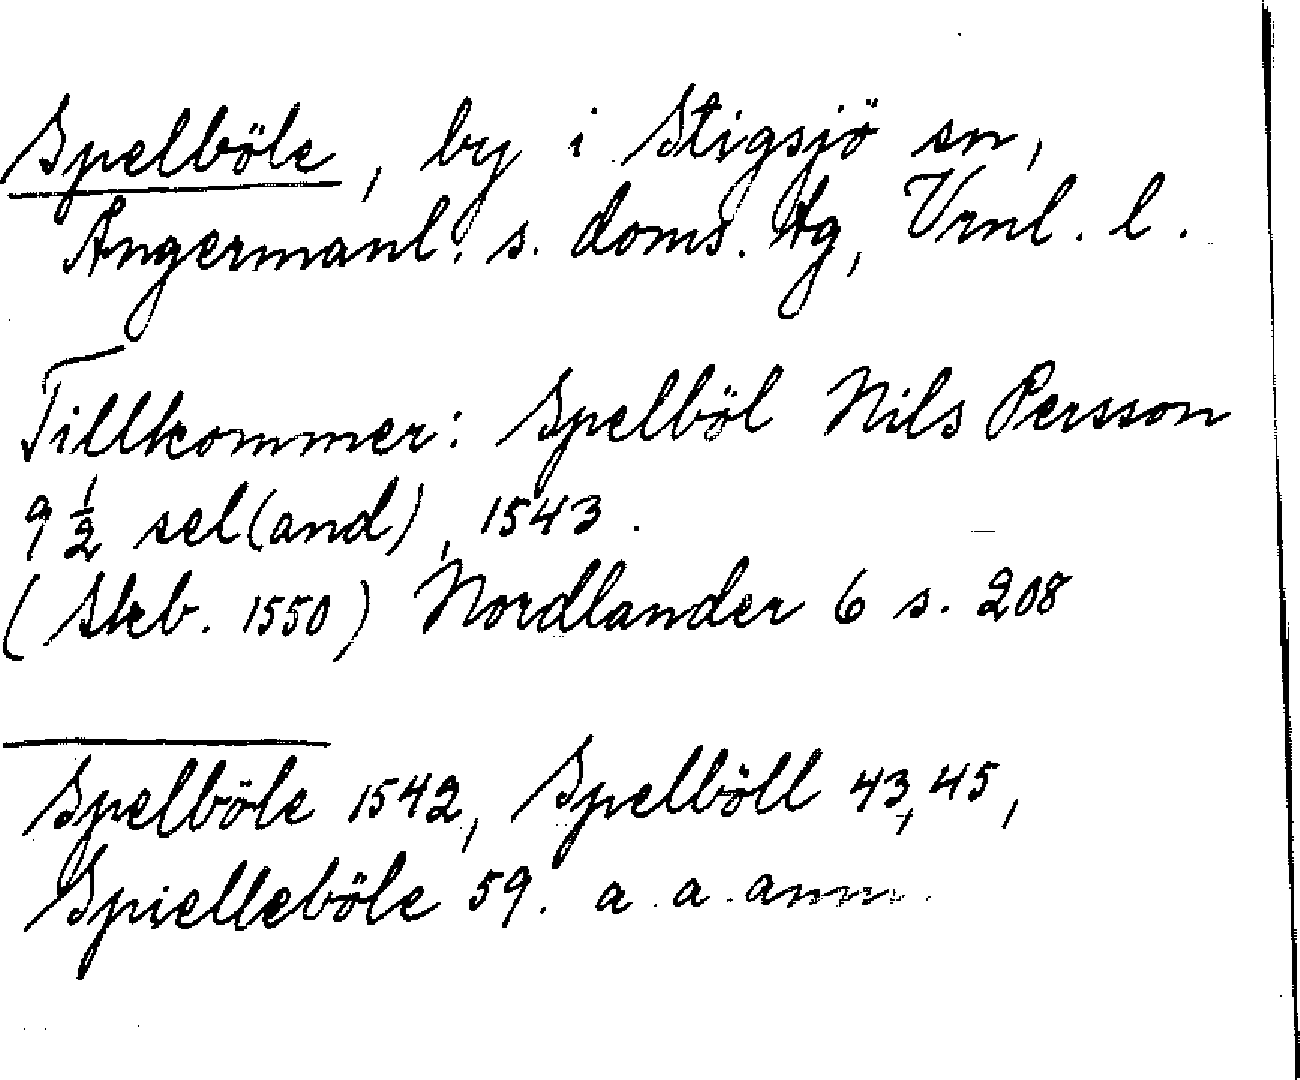 Spelböle, by i Stigsjö sn,
Ångermanl. s. doms. tg, Vrnl. l.
Tillkommer: Spelböl Nils Persson
9 ½ sel(and), 1543.
(Skb. 1550) Nordlander 6 s. 208
Spelböle 1542, Spelböll 43, 45,
Spielleböle 59. a. a. anm.